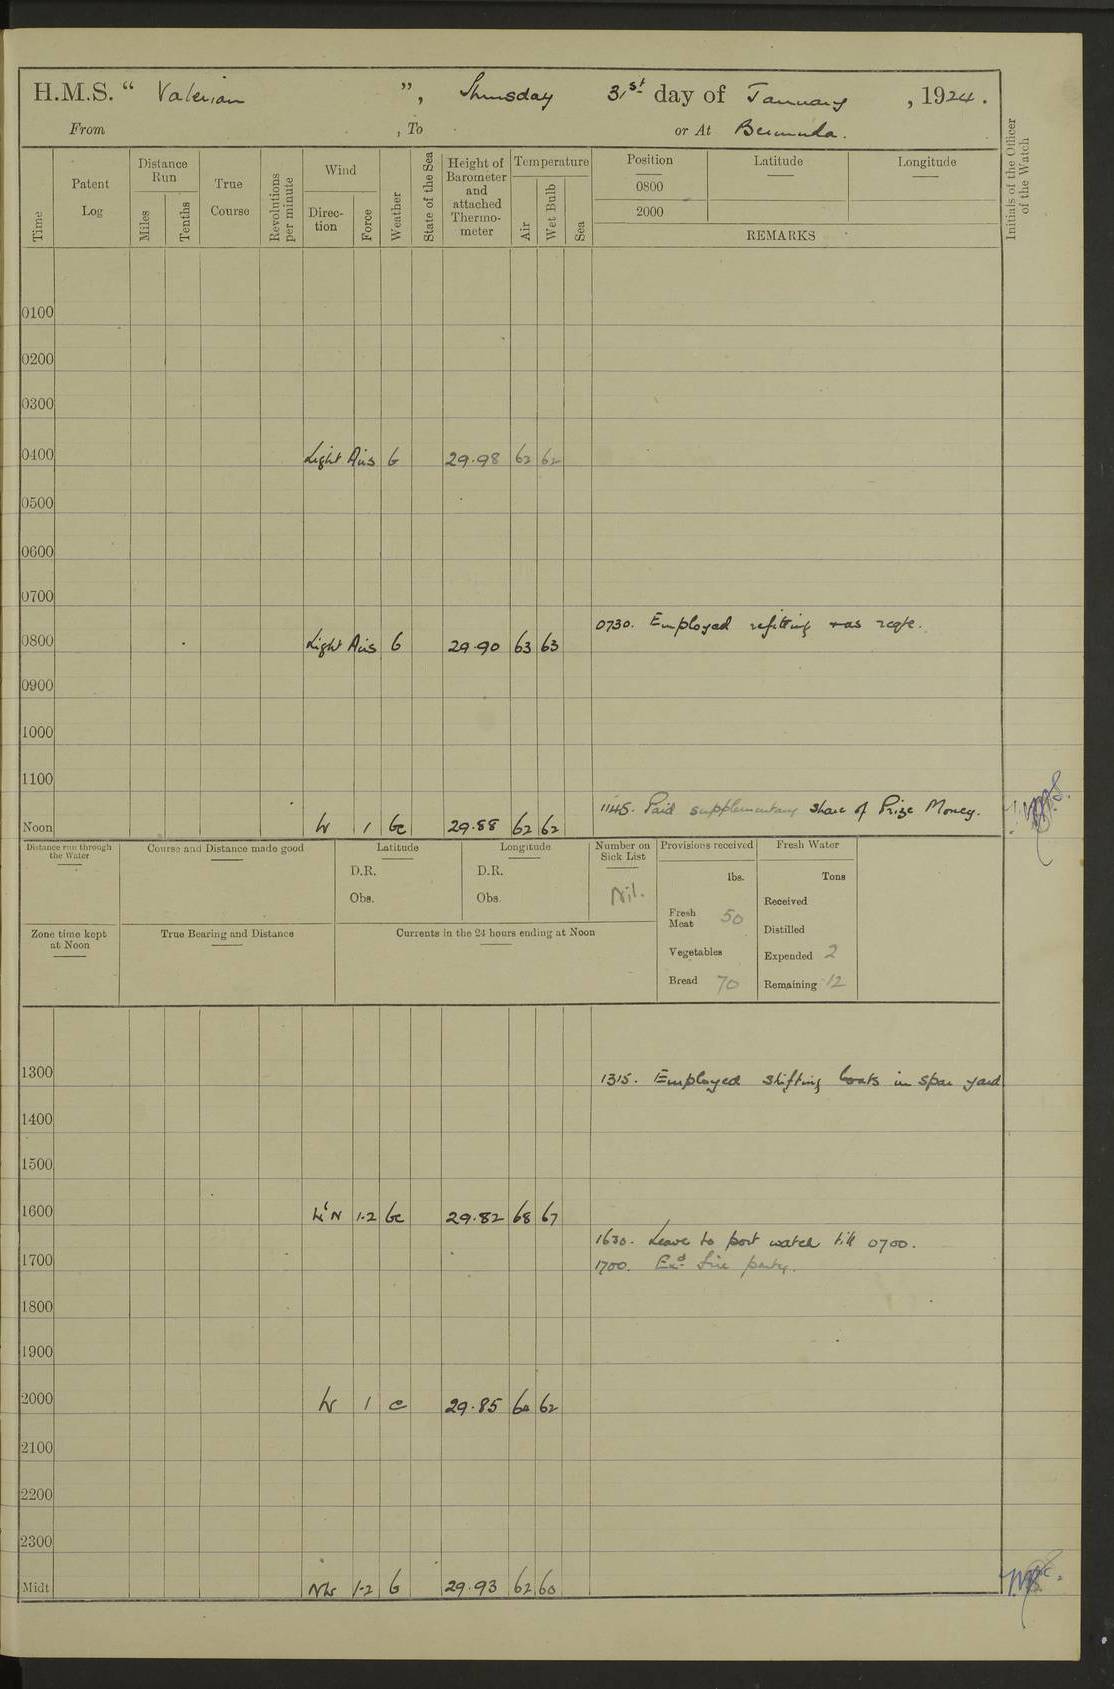 H.M.S. “ Valerian ”, Thursday 31st day of January , 1924.
From , To or At Bermuda.
Time
Patent Log
Distance Run
Miles
Tenths
True Course
Revolutions per minute
Wind
Direc-tion
Force
Weather
State of the Sea
Height of Barometer and attached Thermo-meter
Temperature
Air
Wet Bulb
Sea
Position
0800
2000
Latitude
Longitude
REMARKS
Initials of the Officer of the Watch
0100
0200
0300
0400 Light Airs b 29.98 62 62
0500
0600
0700
0730. Employed refitting reqte.
0800 Light Airs b 29.90 63 63
0900
1000
1100
1145. Paid supplementary share of Prize Money.
Noon W 1 bc 29.88 62 62
Distance run through the Water
Course and Distance made good
Latitude
D.R.
Obs.
Longitude
D.R.
Obs.
Number on Sick List
Nil.
Provisions received
lbs.
Fresh Meat 50
Vegetables
Bread 70
Fresh Water
Tons
Received
Distilled
Expended 2
Remaining 12
Zone time kept at Noon
True Bearing and Distance
Currents in the 24 hours ending at Noon
1300 1315. Employed shifting boats in spar yard
1400
1500
1600 W'N 1-2 bc 29.82 68 67
1630. Leave to port watch till 0700.
1700 1700. Exd. fire party.
1800
1900
2000 W 1 c 29.85 62
2100
2200
2300
Midt. NW 1-2 b 29.93 62 60